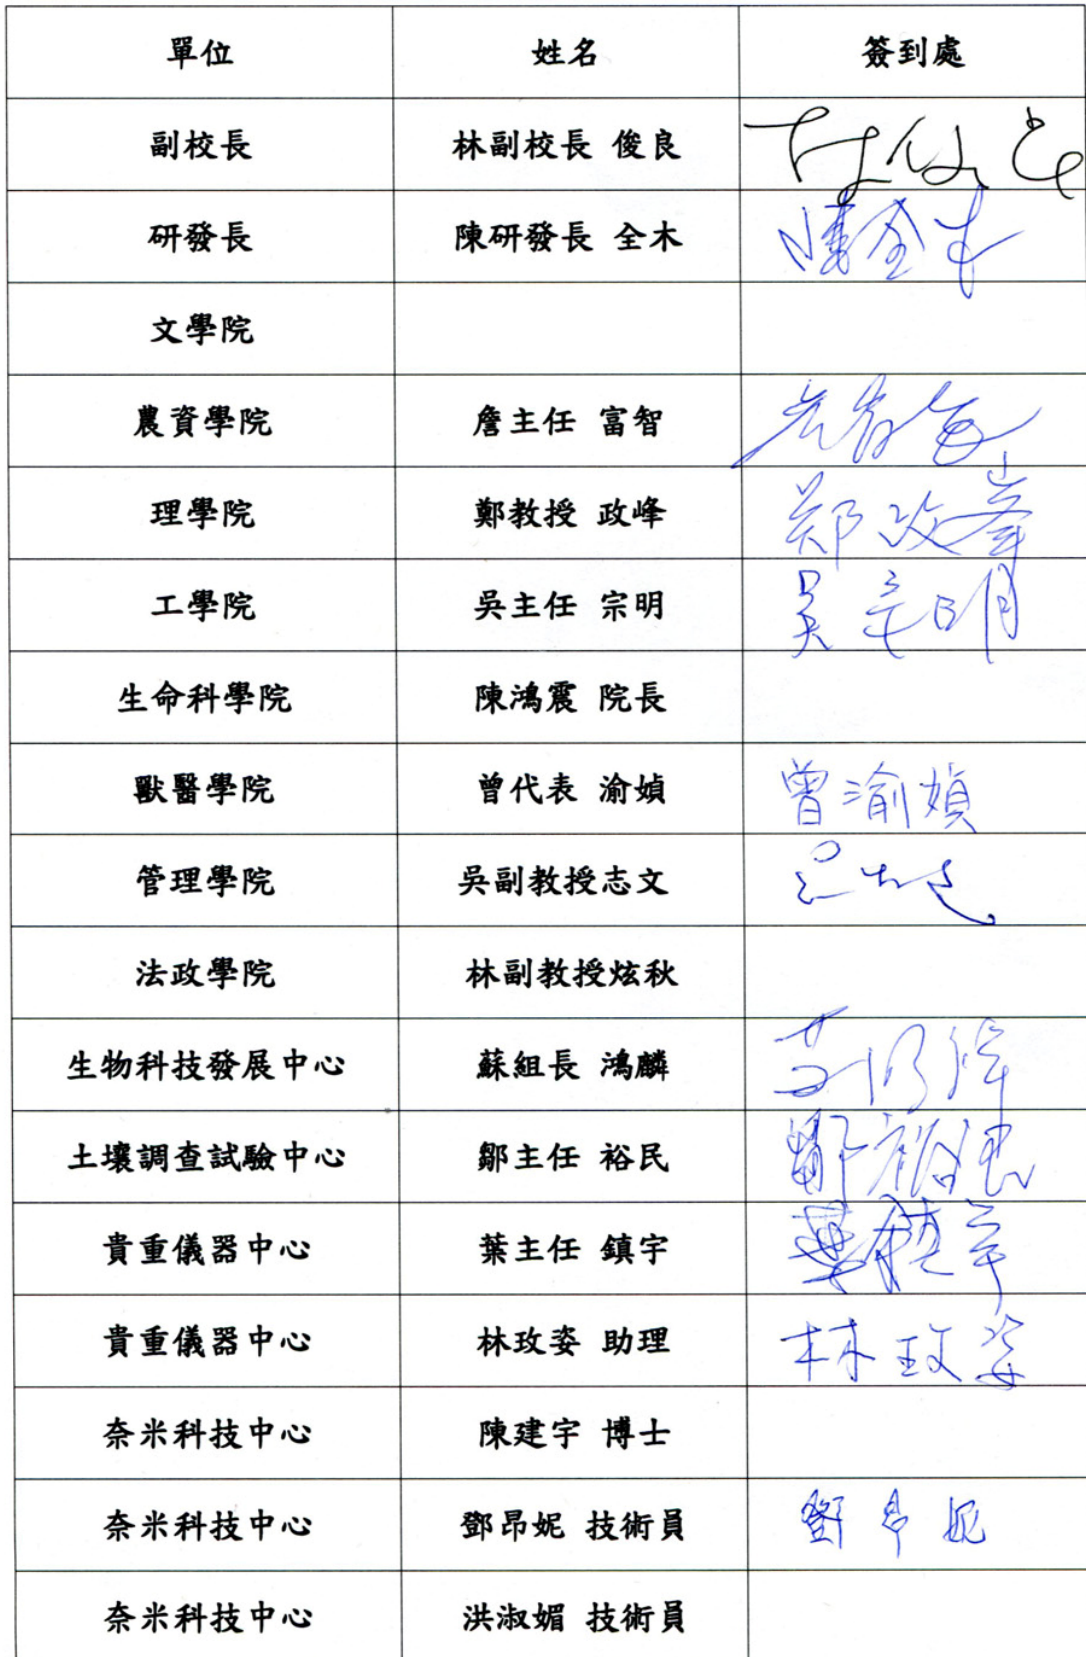 單位 姓名 簽到處
副校長 林副校長 俊良 林俊良
研發長 陳研發長 全木 陳全木
文學院
農資學院 詹主任 富智
理學院 鄭教授 政峰 鄭政峯
工學院 吳主任 宗明 吳宗明
生命科學院 陳鴻震 院長
獸醫學院 曾代表 渝媜 曾渝媜
管理學院 吳副教授志文
法政學院 林副教授炫秋
生物科技發展中心 蘇組長 鴻麟
土壤調查試驗中心 鄒主任 裕民 鄒裕民
貴重儀器中心 葉主任 鎮宇 葉鎮宇
貴重儀器中心 林玫姿 助理 林玫姿
奈米科技中心 陳建宇 博士
奈米科技中心 鄧昂妮 技術員 鄧昂妮
奈米科技中心 洪淑媚 技術員